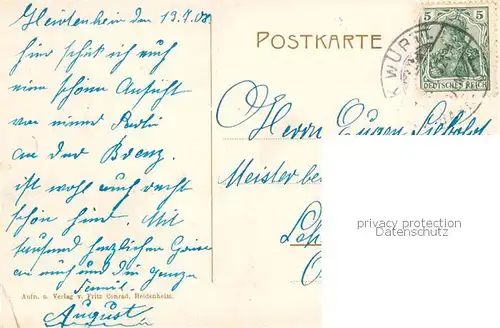 Heidenheim den 19.7.08
hier schick ich euch
eine schöne Ansicht
von einer Partie
an der Brenz.
ist wohl auch recht
schön hier. Mit
tausend herzlichen Grüsse
an euch und die ganze
Famil.
August
Aufn. u. Verlag v. Fritz Conrad, Heidenheim.
POSTKARTE
WÜRTT.
5 5
DEUTSCHES REICH
Herrn Eugen
Meister be
privacy protection
Datenschutz